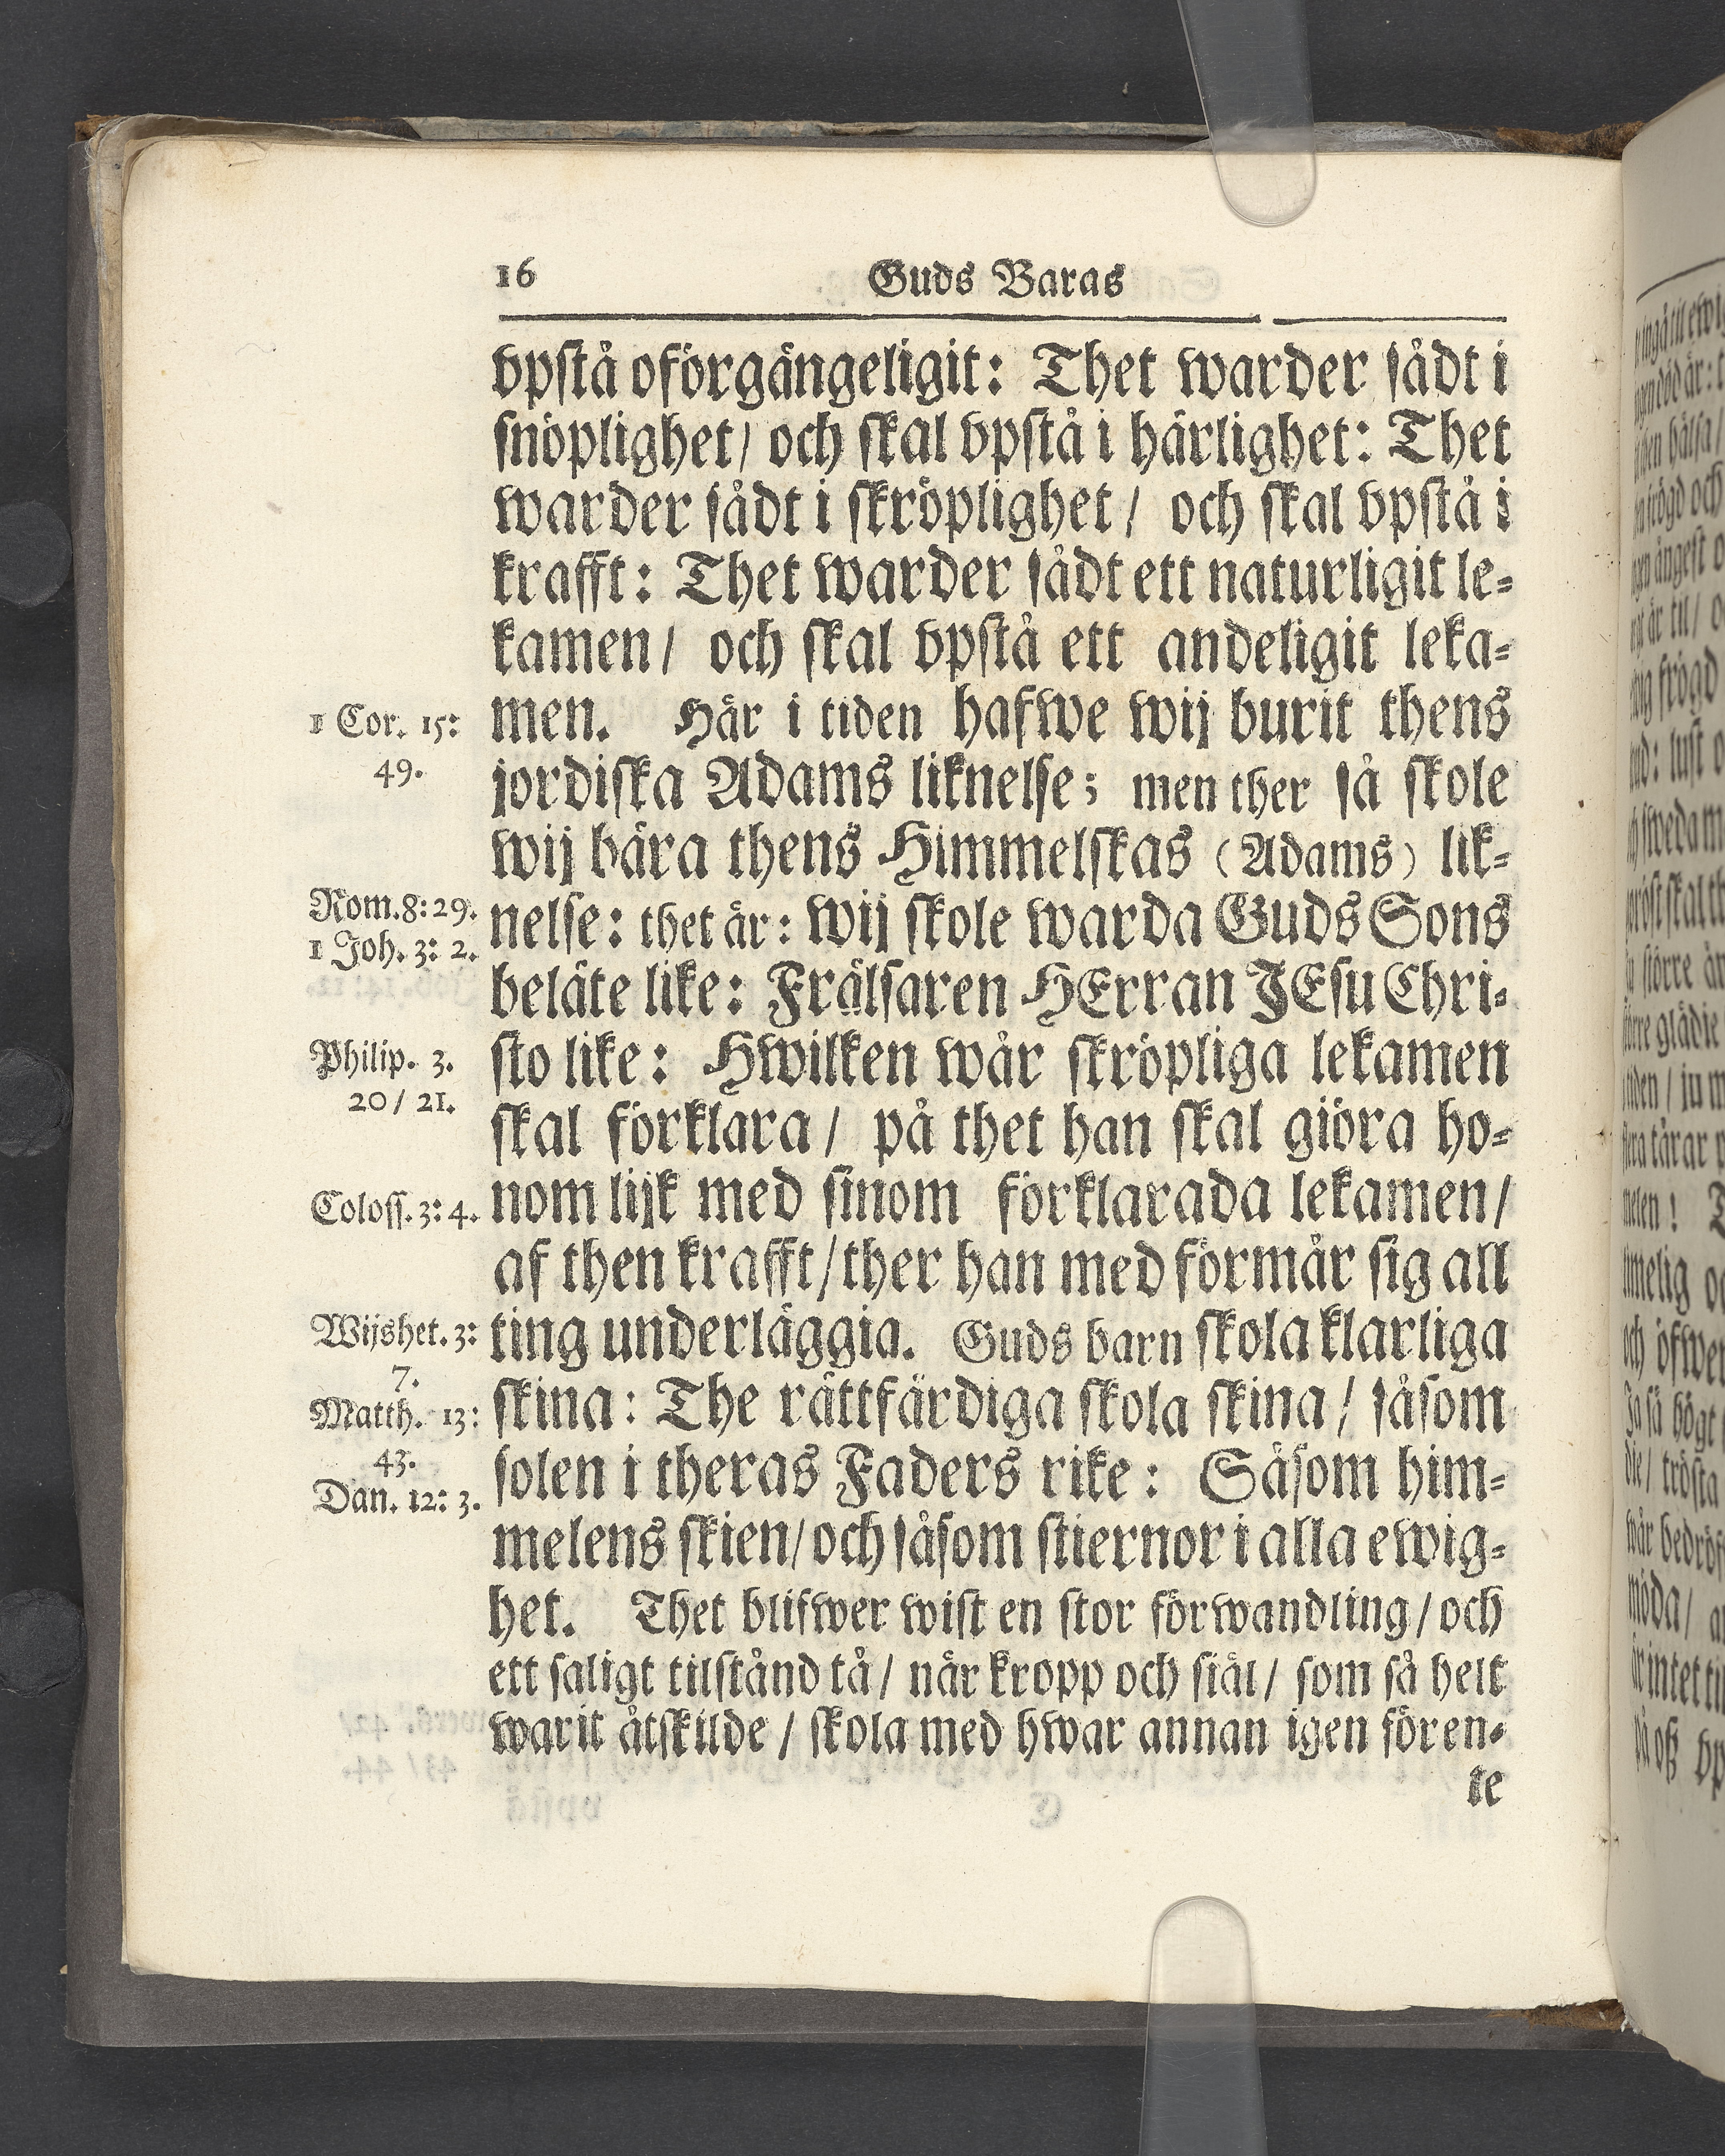 16 Guds Baras
vpstå oförgängeligit: Thet warder sådt i
snöplighet/ och skal vpstå i härlighet: Thet
warder sådt i skröplighet/ och skal vpstå i
krafft: Thet warder sådt ett naturligit le=
kamen/ och skal vpstå ett andeligit leka=
1 Cor. 15: men. Här i tiden hafwe wij burit thens
49.
jordiska Adams liknelse; men ther så skole
wij bära thens Himmelskas (Adams) lik=
Rom. 8: 29. nelse: thet är: wij skole warda Guds Sons
1 Joh. 3: 2.
beläte like: Frälsaren HErran JEsu Chri=
Philip. 3. sto like: Hwilken wår skröpliga lekamen
20/ 21.
skal förklara/ på thet han skal giöra ho=
Coloss. 3: 4. nom lijk med sinom förklarada lekamen/
af then krafft/ ther han med förmår sig all
Wijshet. 3: ting underläggia. Guds barn skola klarliga
7.
Matth. 13: skina: The rättfärdiga skola skina/ såsom
43.
solen i theras Faders rike: Såsom him=
Dan. 12: 3.
melens skien/ och såsom stiernor i alla ewig=
het. Thet blifwer wist en stor förwandling/ och
ett saligt tilstånd tå/ når kropp och siäl/ som så helt
warit åtskilde/ skola med hwar annan igen fören=
te